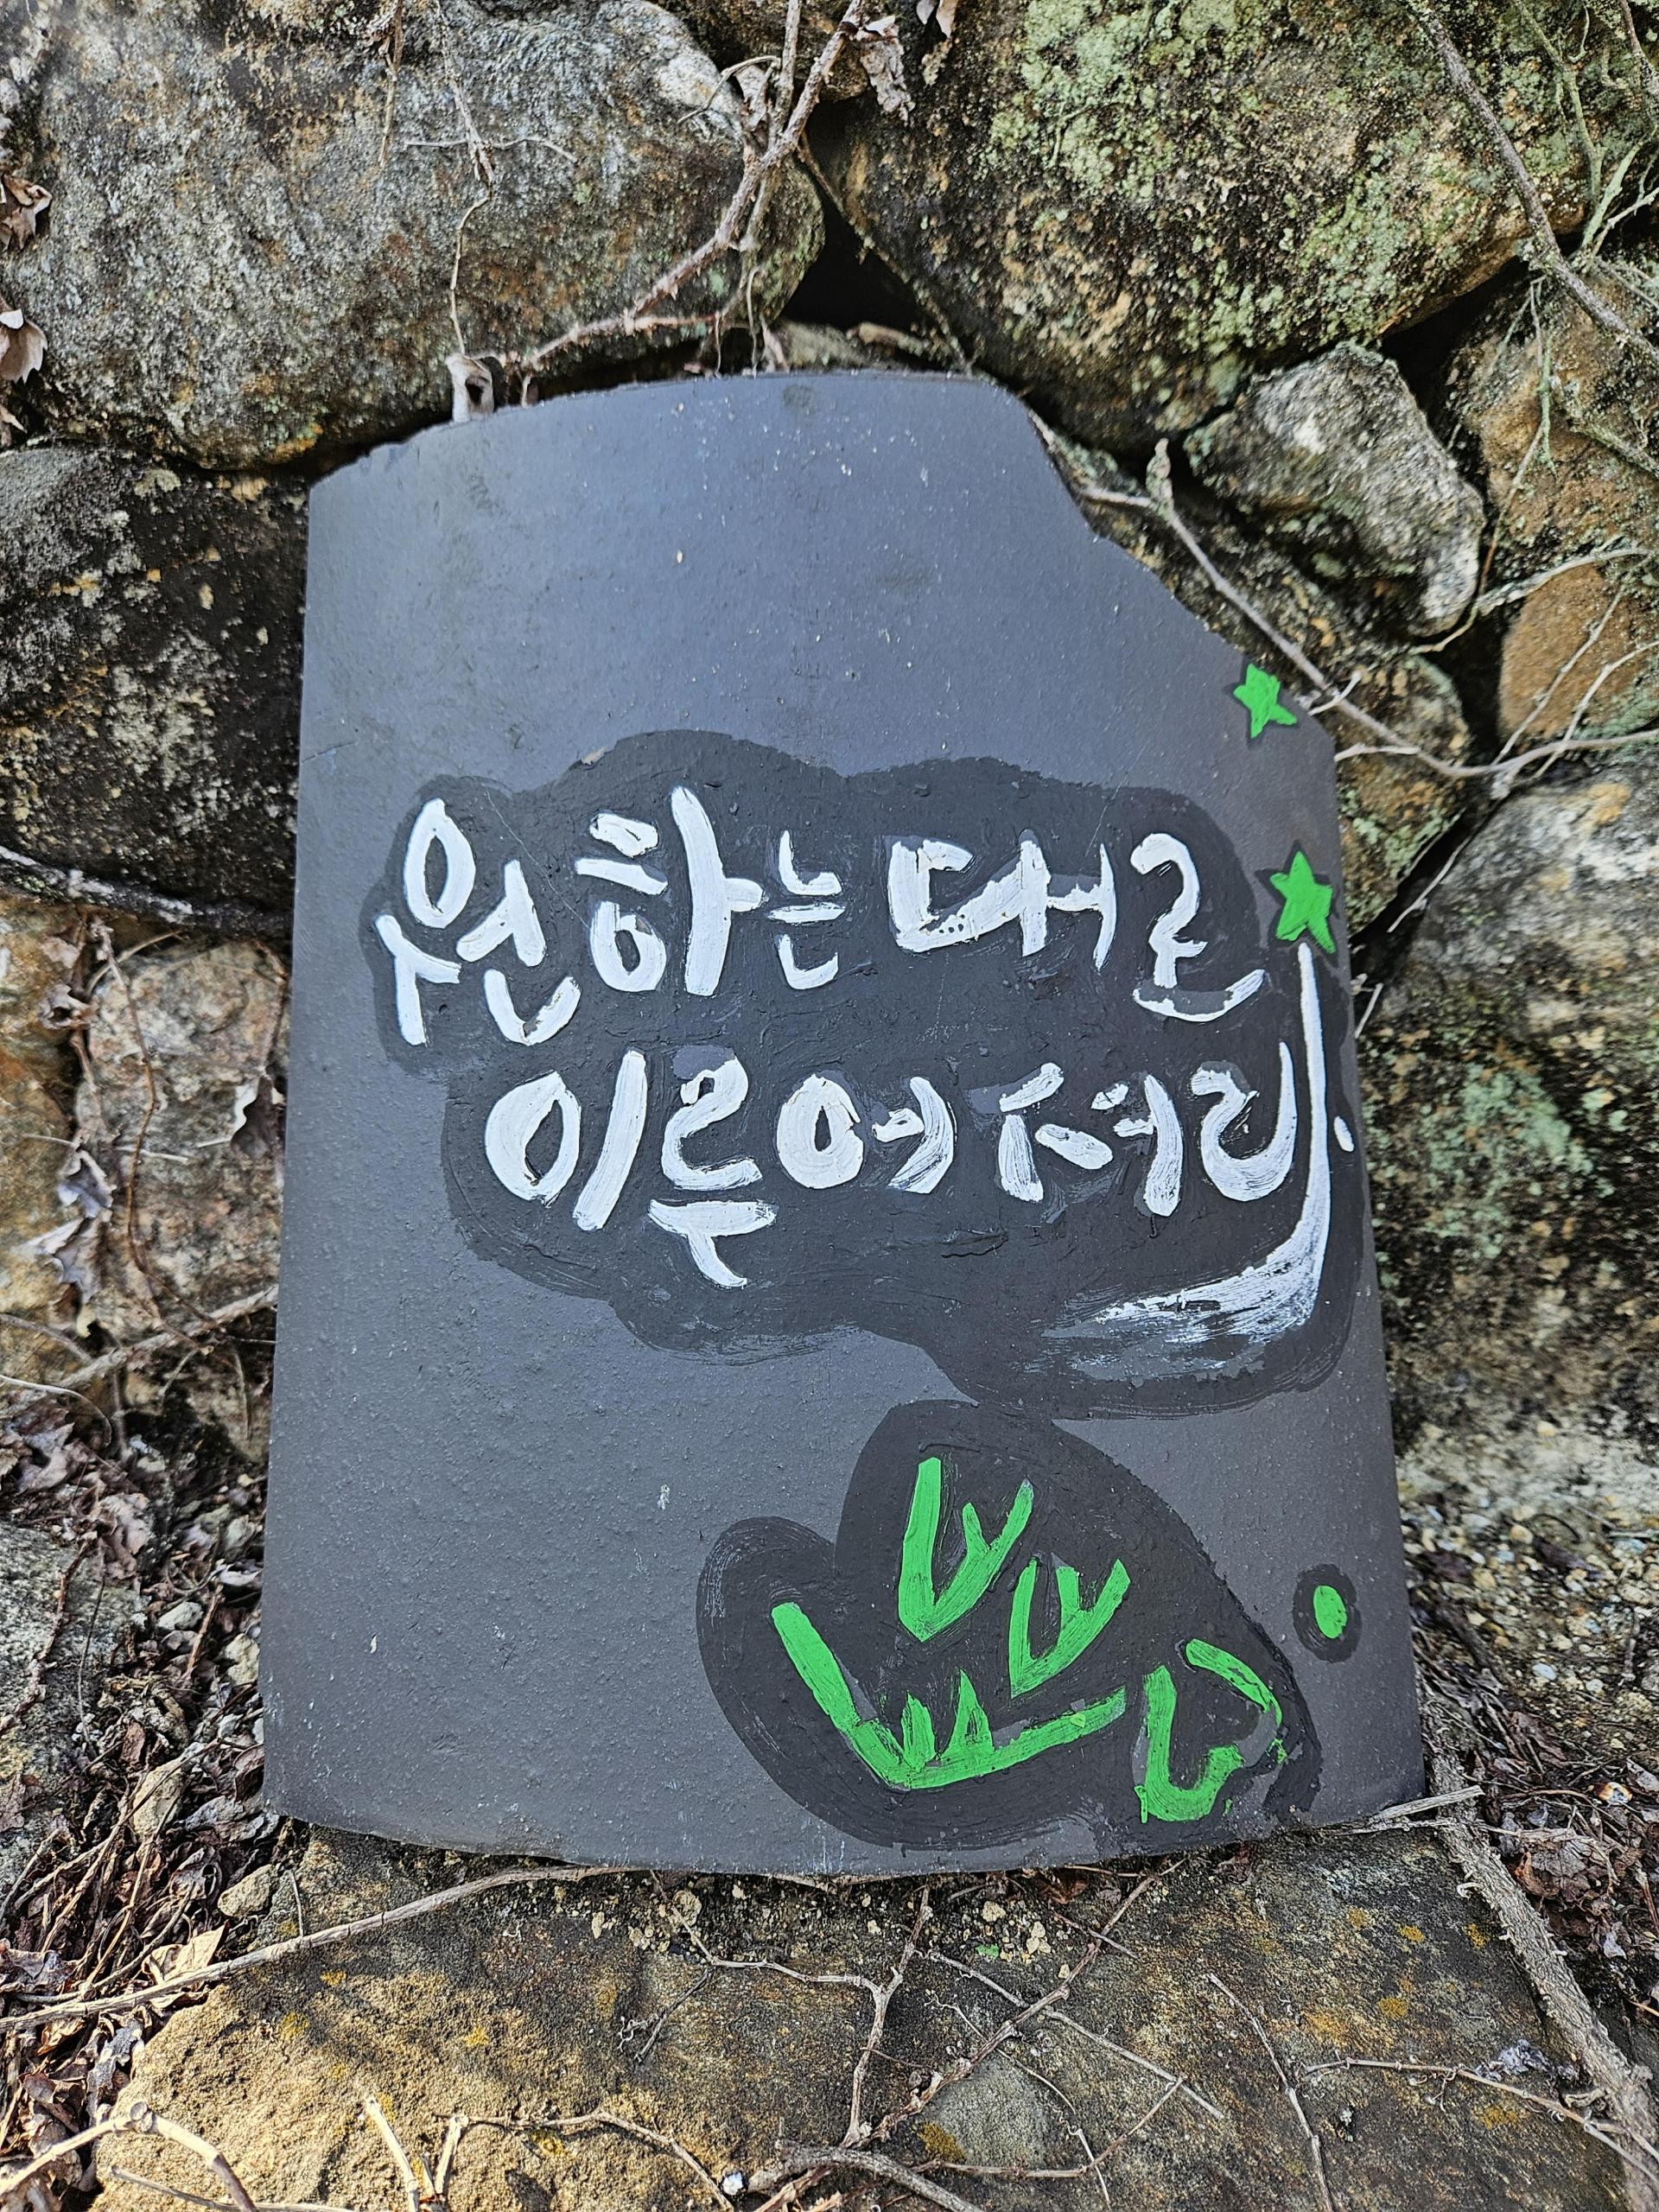 원하는대로
이루어져라.